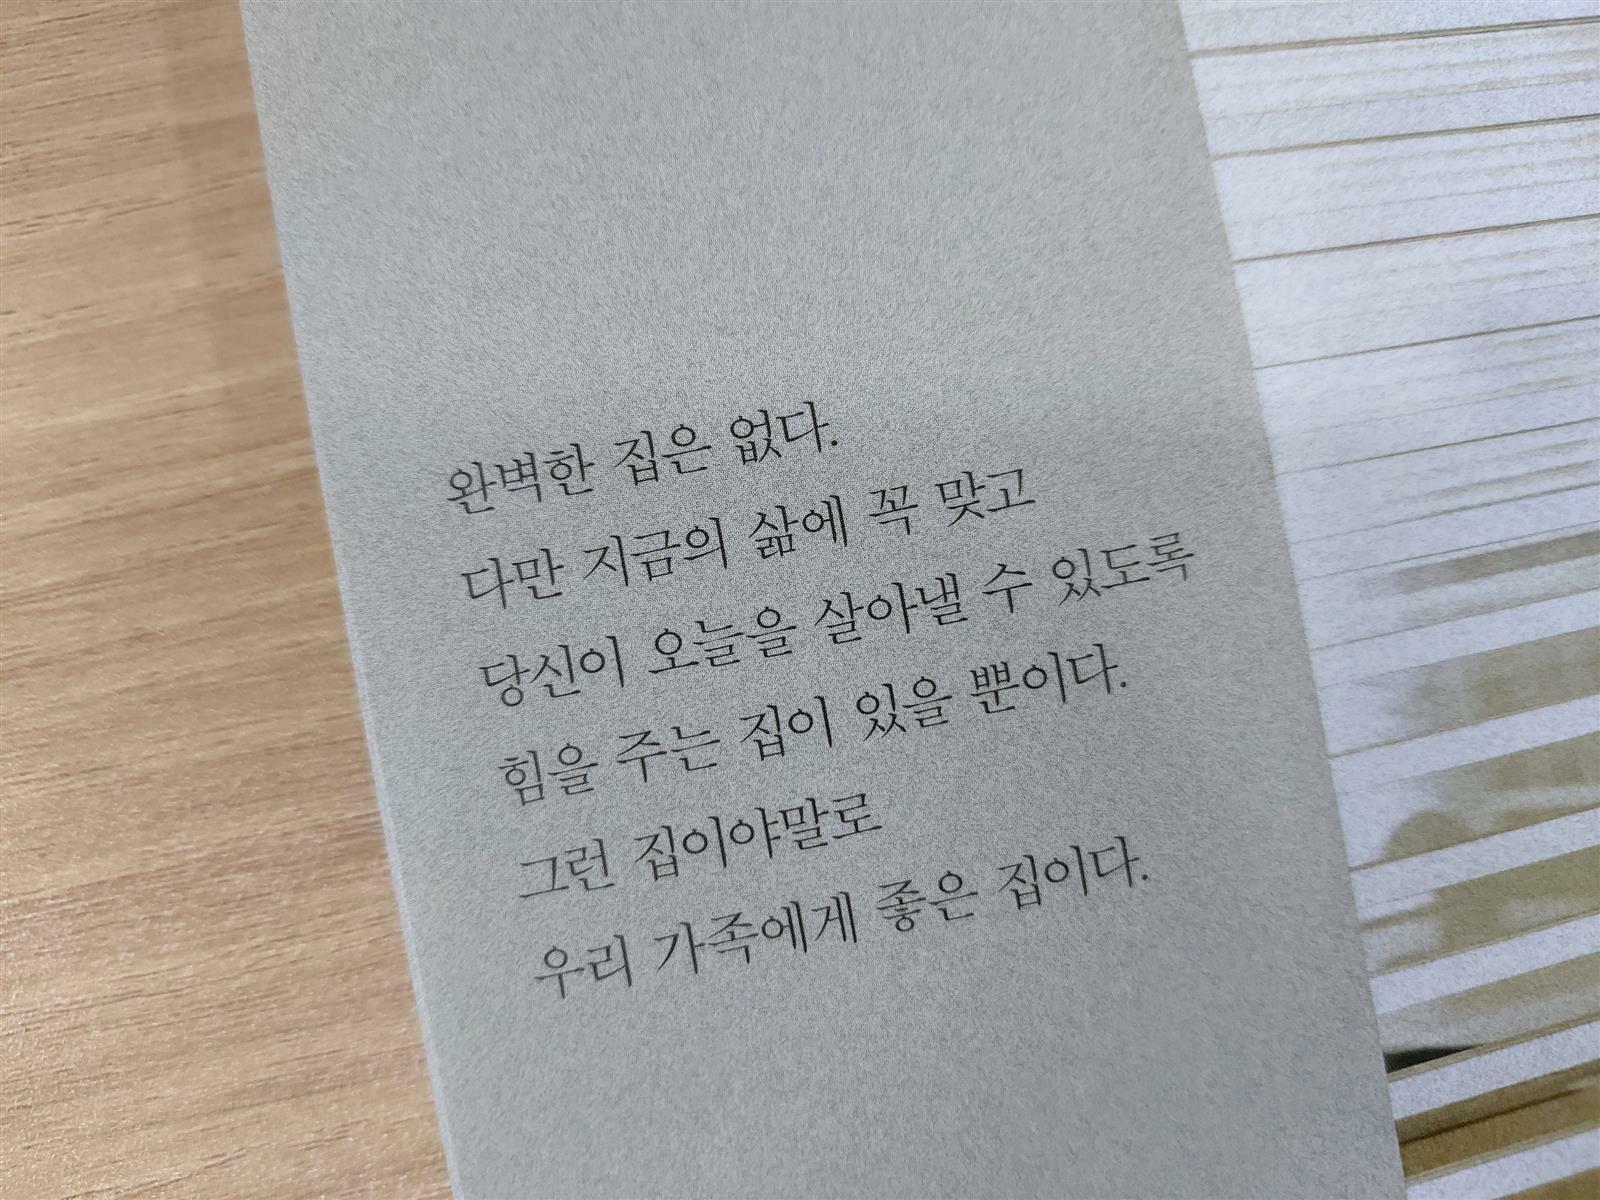 완벽한 집은 없다.
다만 지금의 삶에 꼭 맞고
당신이 오늘을 살아낼 수 있도록
힘을 주는 집이 있을 뿐이다.
그런 집이야말로
우리 가족에게 좋은 집이다.